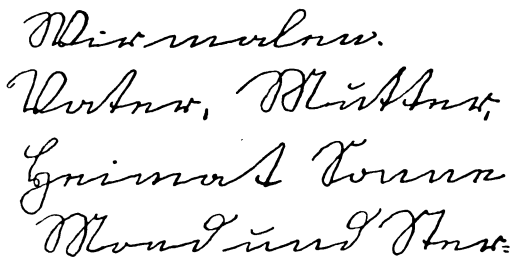 Wir malen.
Vater, Mutter,
Heimat Sonne
Mond und Ster=